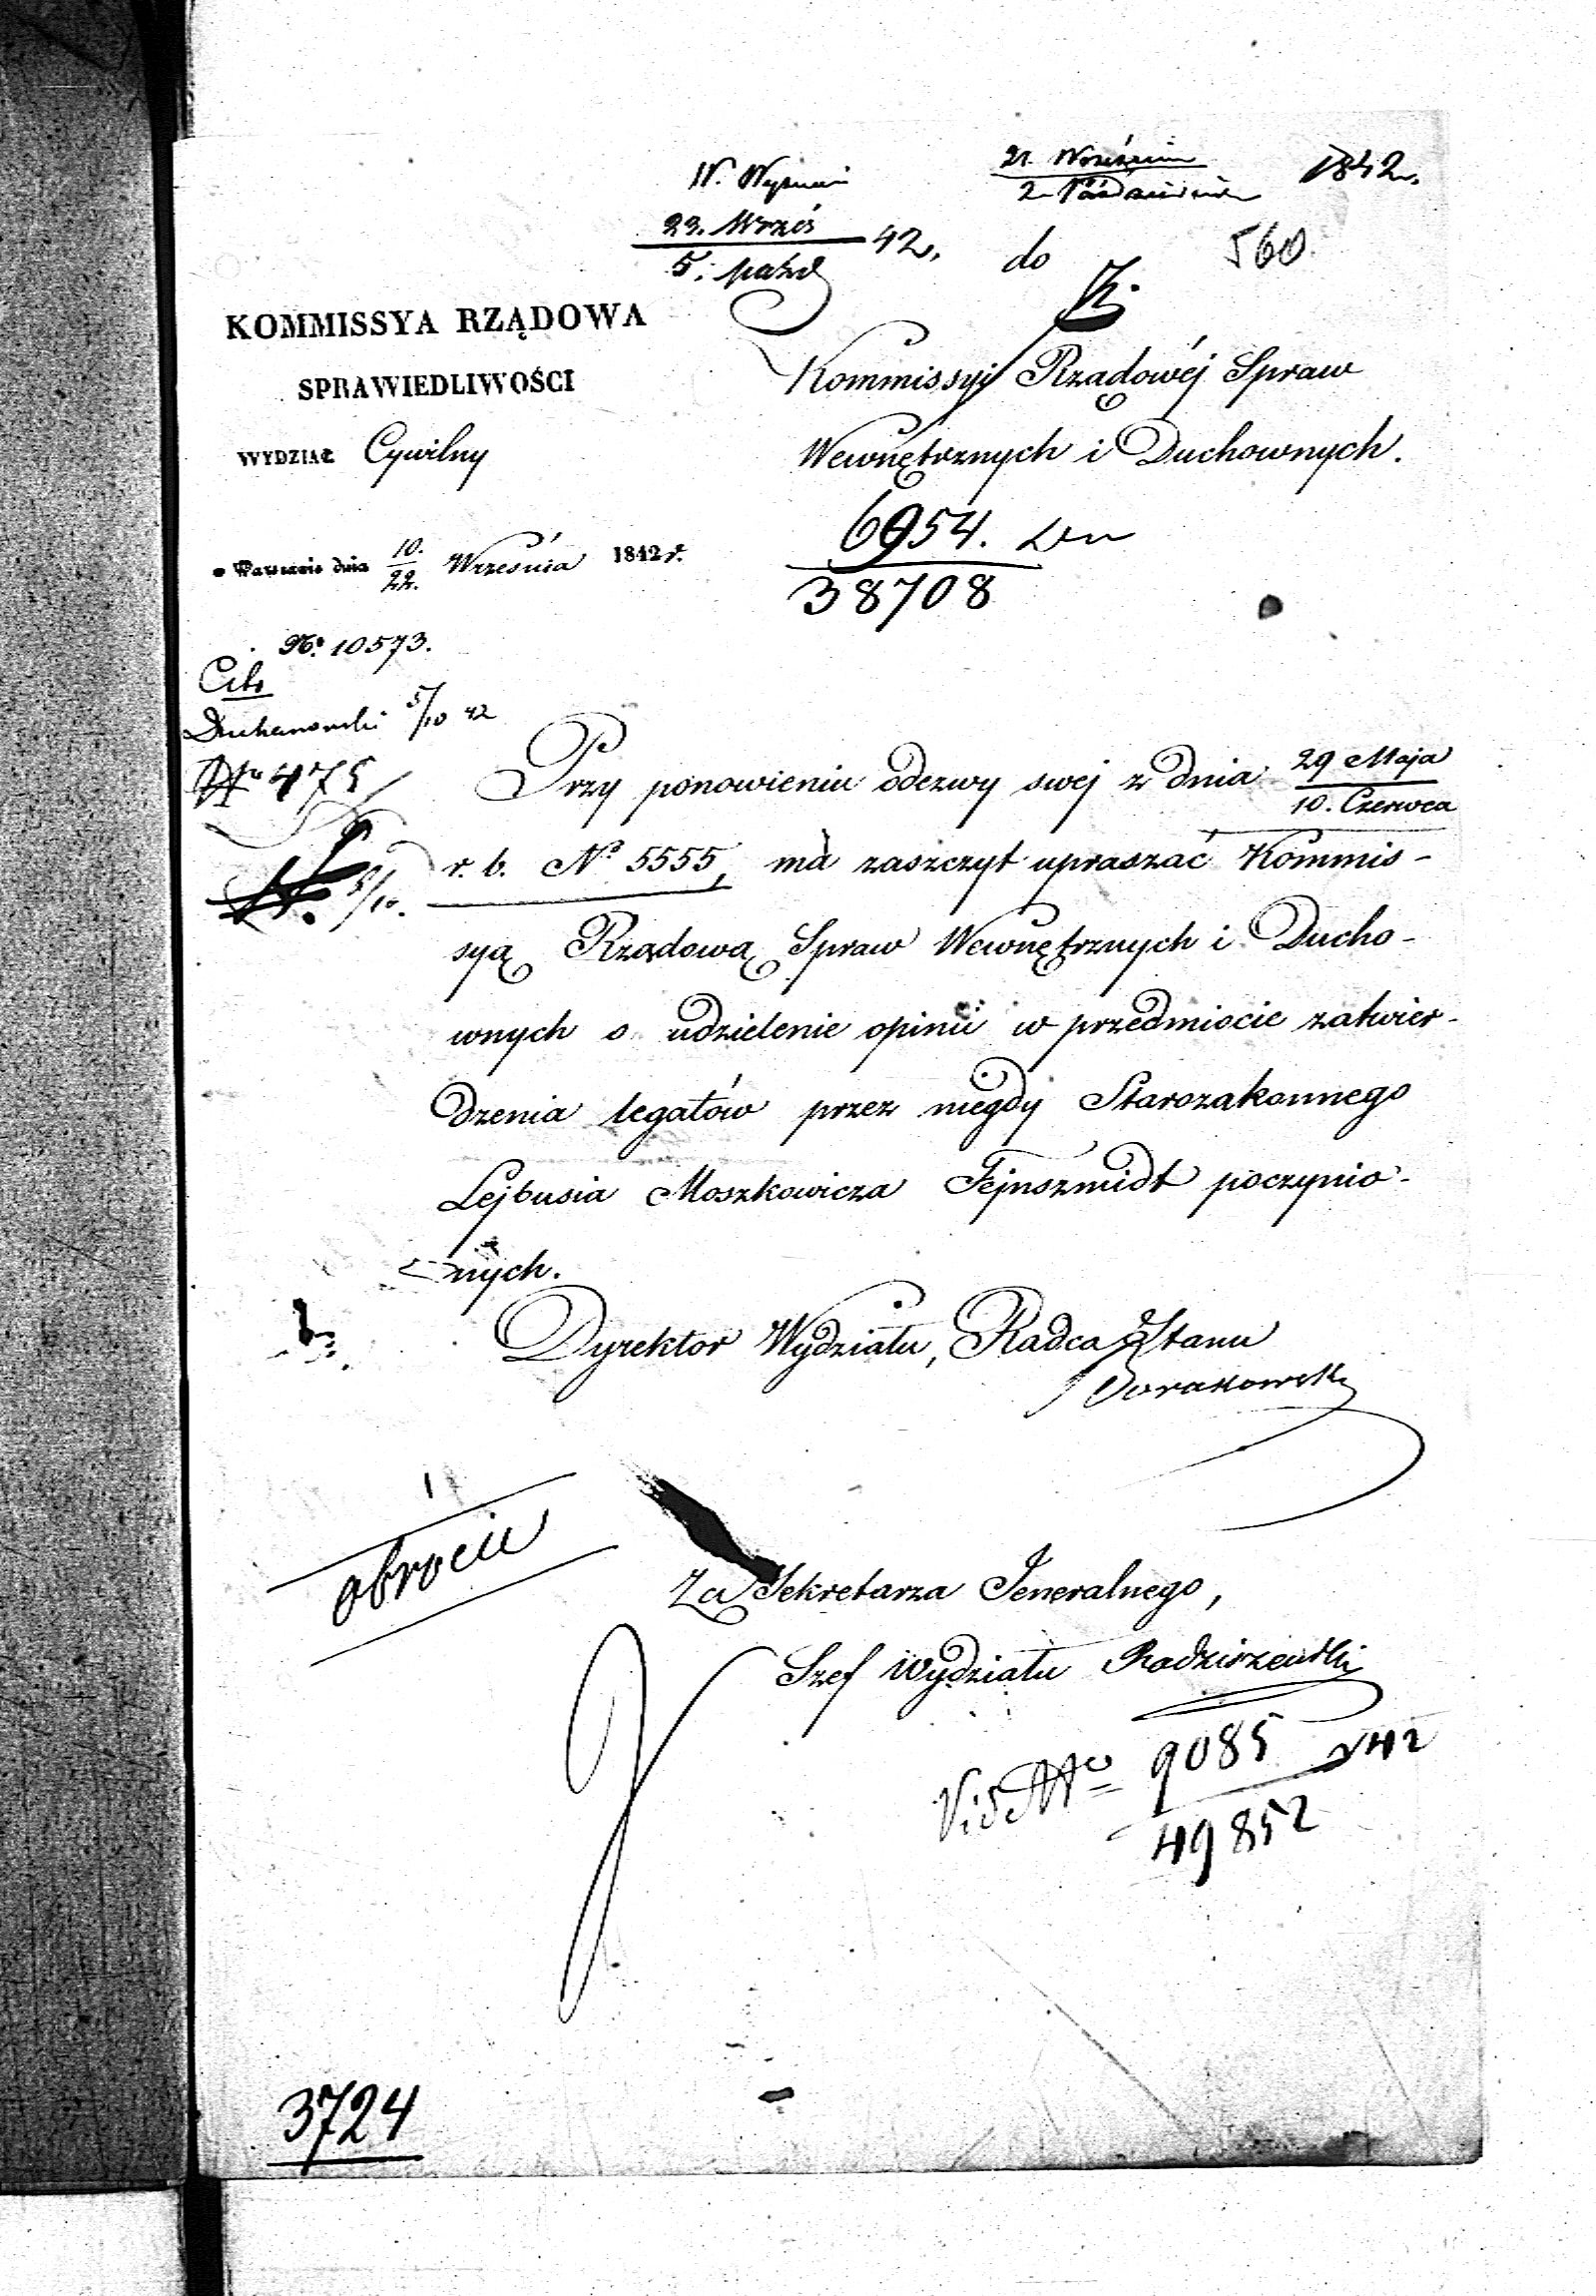 21. Września 1842.
2 Października
23. Wrześ 42.
5. paźd
do 560.
KOMMISSYA RZĄDOWA
SPRAWIEDLIWOŚCI
WYDZIAŁ Cywilny
Kommissyi Rządowéj Spraw
Wewnętrznych i Duchownych.
6954.
38708
w Warszawie dnia 10./22. Września 1842 r.
No. 10573.
Cito
5/10 42
No 475
5/10.
Przy ponowieniu odezwy swej z dnia 29 Maja
10. Czerwca
r. b. No 5555, ma zaszczyt upraszać Kommis-
syą Rządową Spraw Wewnętrznych i Ducho-
wnych o udzielenie opinii w przedmiocie zatwier-
dzenia legatów przez niegdy Starozakonnego
Lejbusia Moszkowicza Fejnszmidt poczynio-
nych.
Dyrektor Wydziału, Radca Stanu
obrócić
Za Sekretarza Jeneralnego,
Szef Wydziału Radziszewski
Vide No 9085 42
49852
3724